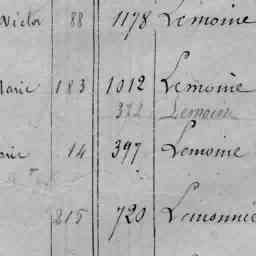 Victor 88 1178 Lemoine
Marie 183 1012 Lemoine
382 Lemoine
Marie 14 397 Lemoine
215 720 Lemonnie